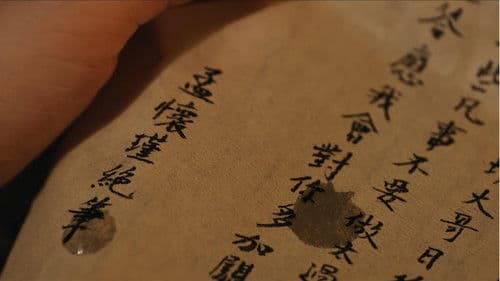 大哥日
些凡事不要做太過
答應我會對你多加關
孟懷瑾絕筆